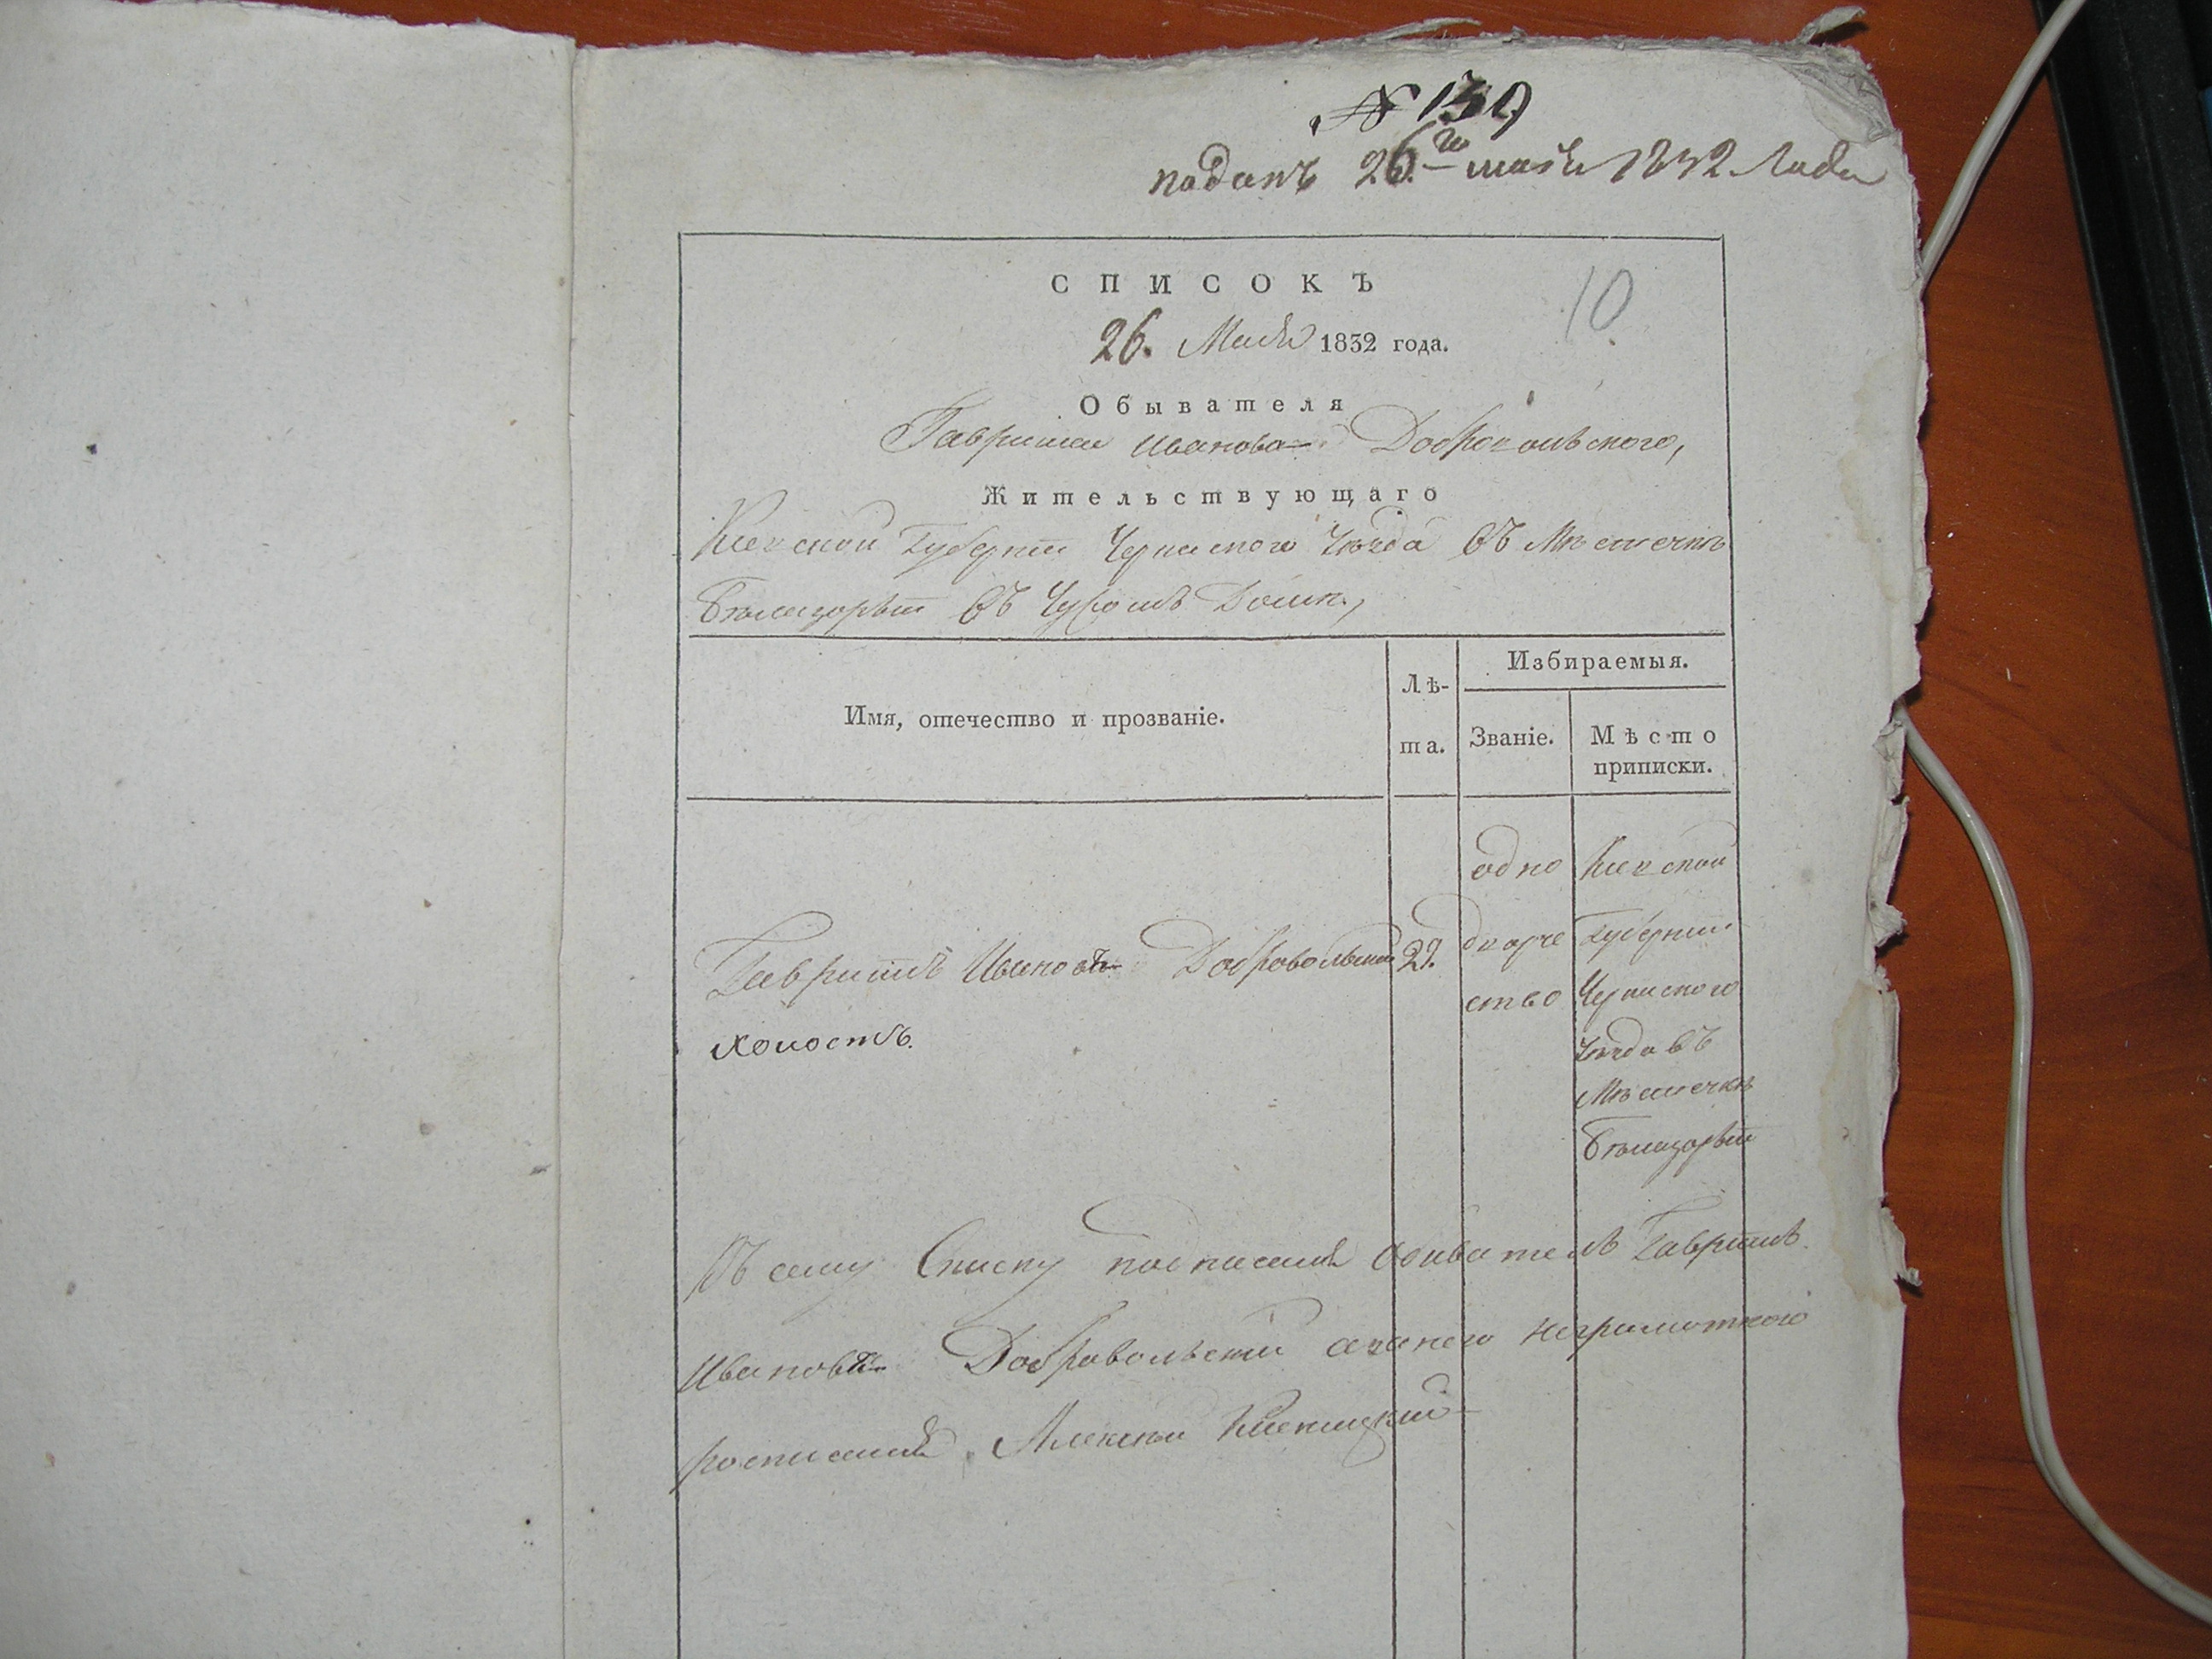 № 139
поданъ 26.го мая 1832 Года
10
СПИСОКЪ
26. Мая 1832 года.
Обывателя
Гавриила Иванова Добровольского,
Жительствующаго
Киевской Губернии Черкаского Уезда въ Мѣстечкѣ
Бѣлозорьи въ Чужомъ Домѣ,
Имя, отечество и прозваніе.
Лѣ-
та.
Избираемыя.
Званіе.
Мѣсто
приписки.
Гавриилъ Ивановъ Добровольский
холостъ.
29.
одно
дворче
ство
Киевской
Губернии
Черкаского
Уезда въ
Мѣстечкѣ
Бѣлозорьи
Къ сему Списку подписался обиватель Гавриилъ
Ивановъ Добровольский а за него неграмотного
росписался Алексей